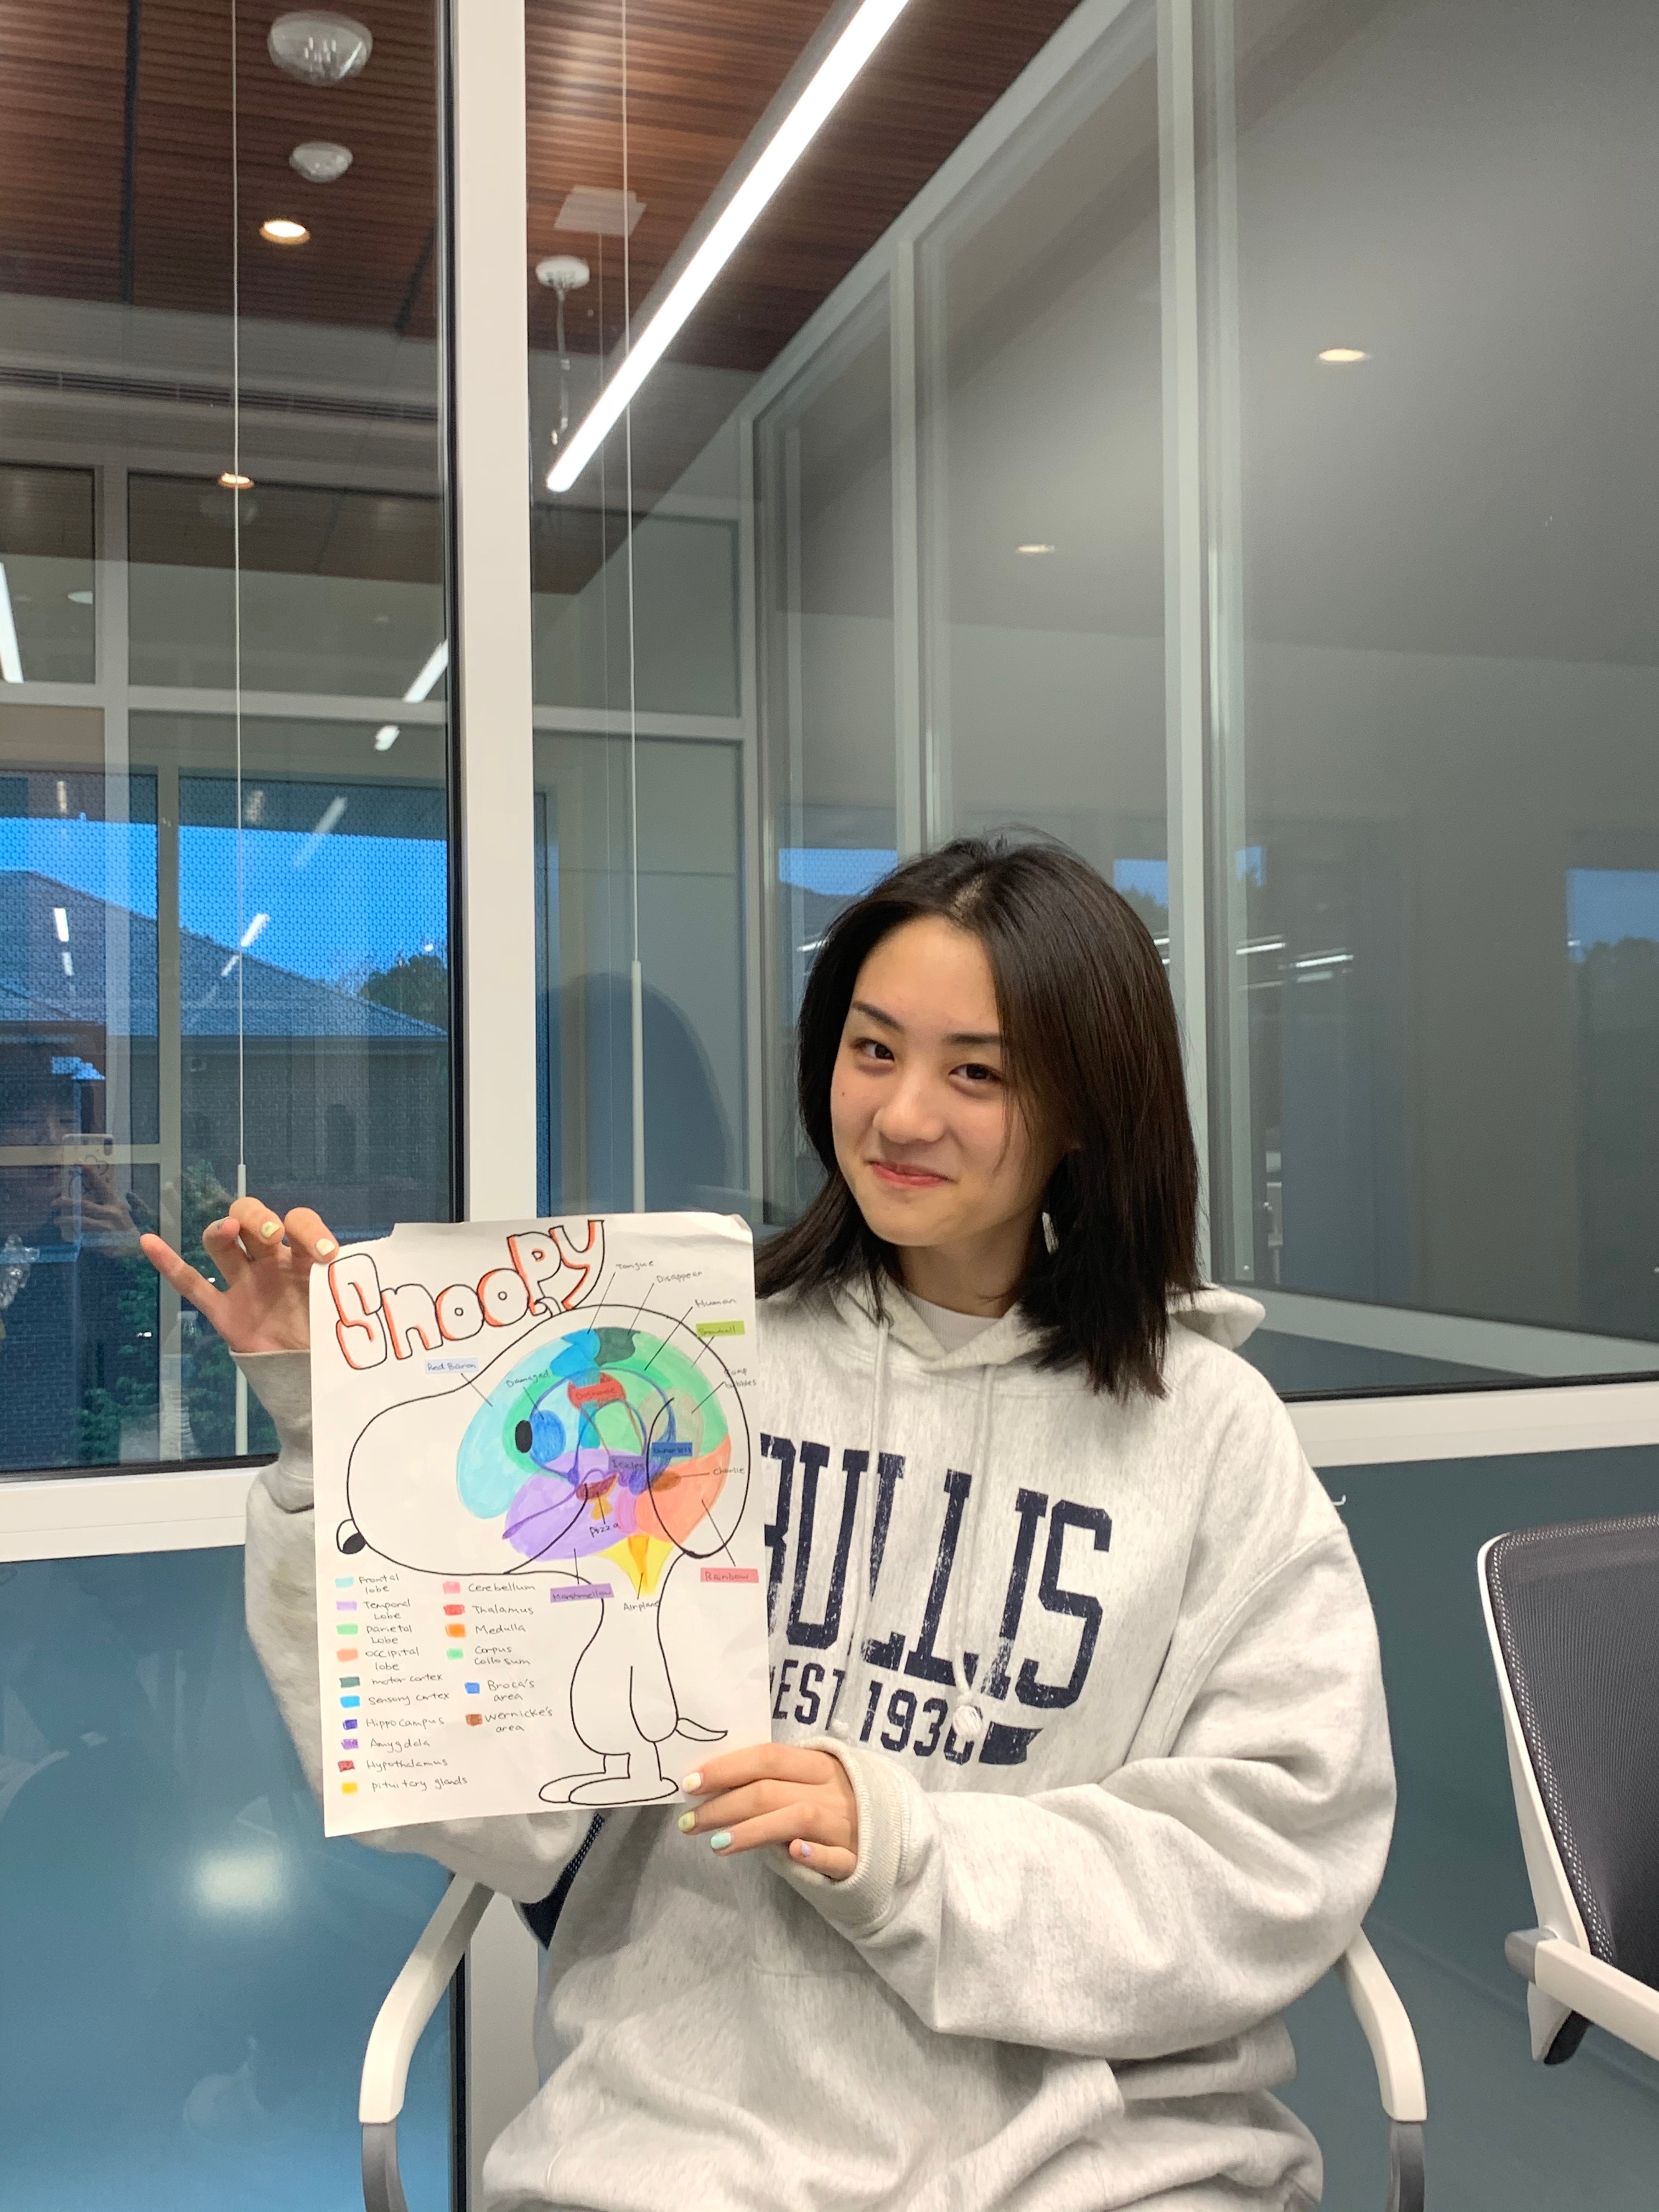 Snoopy
Tongue
Disappear
Human
Snowball
Red Baron
Damaged
Icicles
Charlie
Pizza
Marshmellow
Airplane
Rainbow
Frontal
lobe
Temporal
Lobe
Parietal
Lobe
Occipital
lobe
motor cortex
Sensory cortex
Hippocampus
Amygdala
Hypothalamus
pituitary glands
Cerebellum
Thalamus
Medulla
Corpus
Collosum
Broca's
area
Wernicke's
area
BULLIS
EST 1930